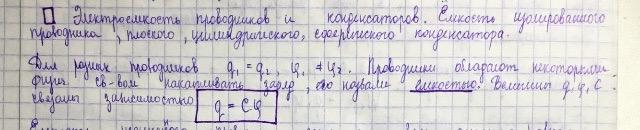 Электроемкость проводников и конденсаторов. Емкость изолированного
проводника, плоского, цилиндрического, сферического конденсатора.
Для разных проводников q₁ = q₂, φ₁ ≠ φ₂. Проводники обладают некоторыми
физич. св-вом накапливать заряд, его назвали емкостью. Величины q, φ, C
связаны зависимостью q = Cφ